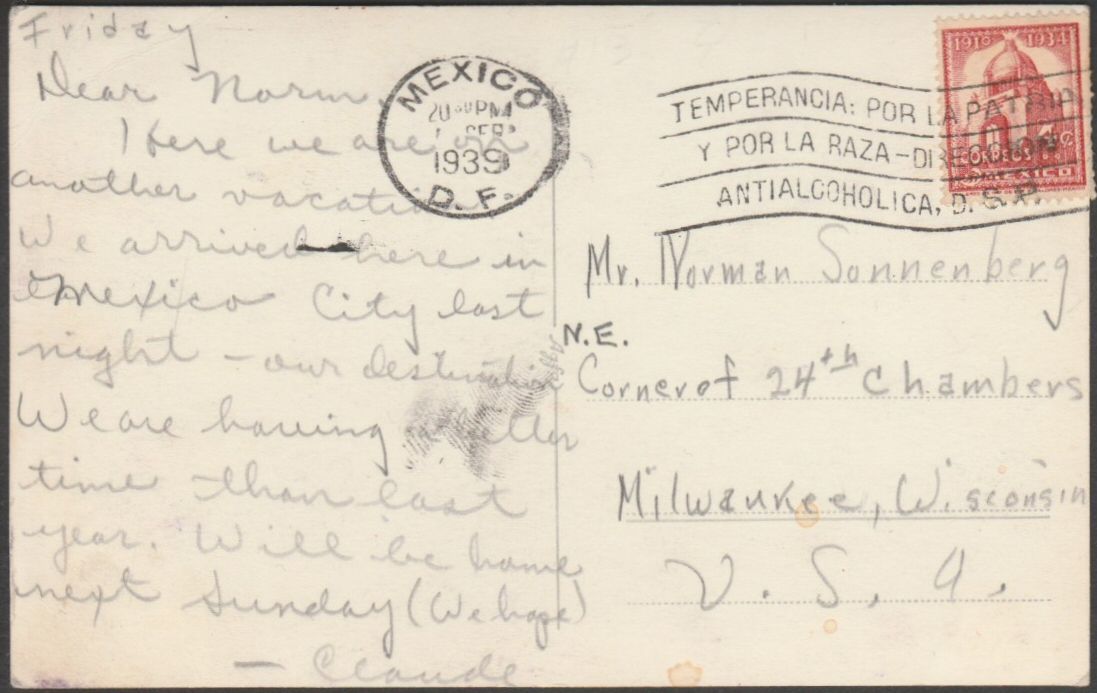 Friday
Dear Norm,
Here we are on
another vacation
We arrived here in
Mexico City last
night - our destination
We are having a better
time than last
year. Will be home
next Sunday (We hope)
- Claude
MEXICO
PM
SEP
1939
D. F.
TEMPERANCIA: POR LA PATRIA
Y POR LA RAZA-DIRECCION
ANTIALCOHOLICA, D. S. P.
1916 1934
4c.
CORREOS
MEXICO
Mr. Norman Sonnenberg
N.E.
Corner of 24th Chambers
Milwaukee, Wisconsin
U. S. A.